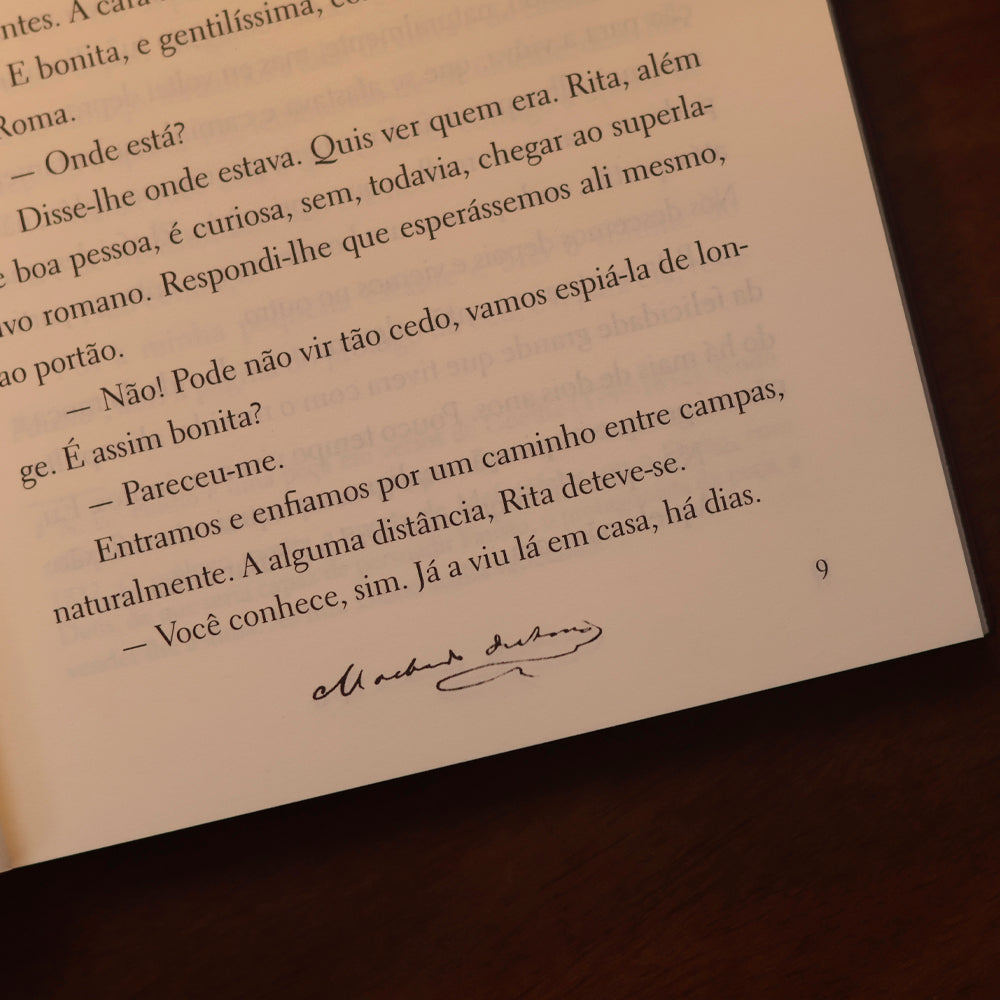 A cara
E bonita, e gentilíssima,
Roma.
— Onde está?
Disse-lhe onde estava. Quis ver quem era. Rita, além
boa pessoa, é curiosa, sem, todavia, chegar ao superla-
ivo romano. Respondi-lhe que esperássemos ali mesmo,
ao portão.
— Não! Pode não vir tão cedo, vamos espiá-la de lon-
ge. É assim bonita?
— Pareceu-me.
Entramos e enfiamos por um caminho entre campas,
naturalmente. A alguma distância, Rita deteve-se.
— Você conhece, sim. Já a viu lá em casa, há dias.
9
Machado